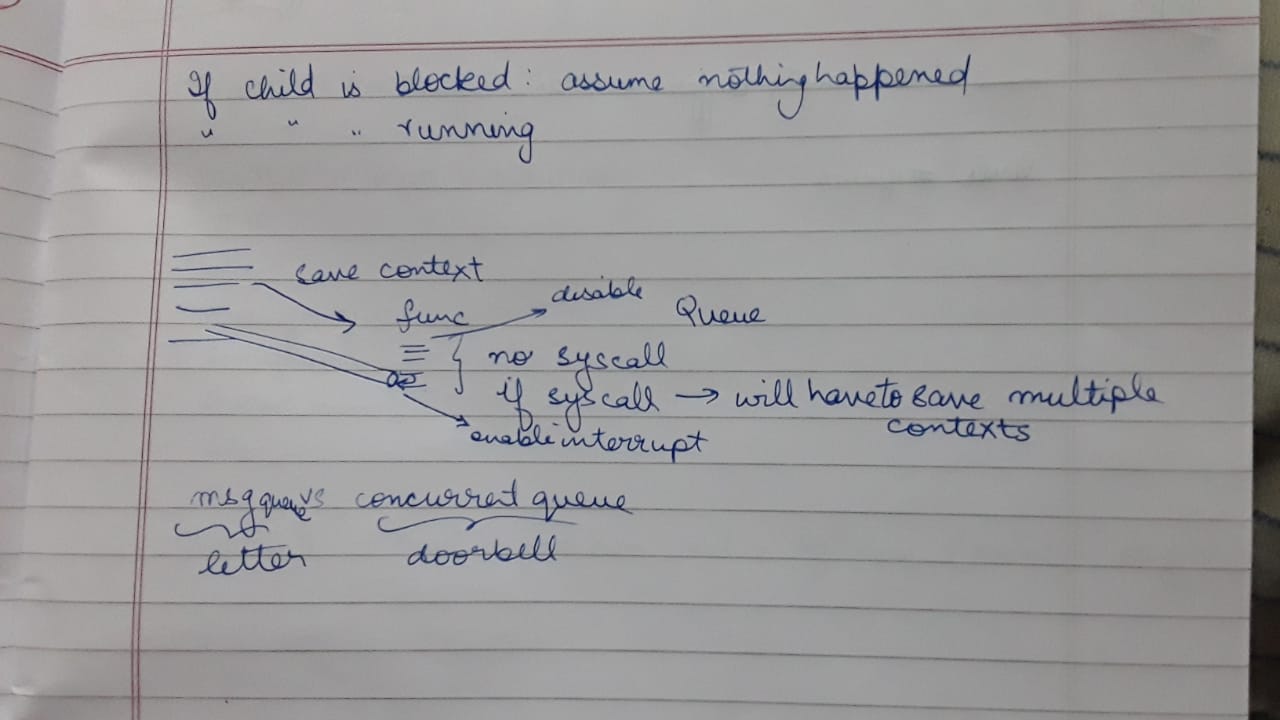 If child is blocked: assume nothing happened
" " " running
save context
func
disable
Queue
no syscall
if syscall → will have to save multiple
contexts
enable interrupt
msg queue vs concurrent queue
letter doorbell